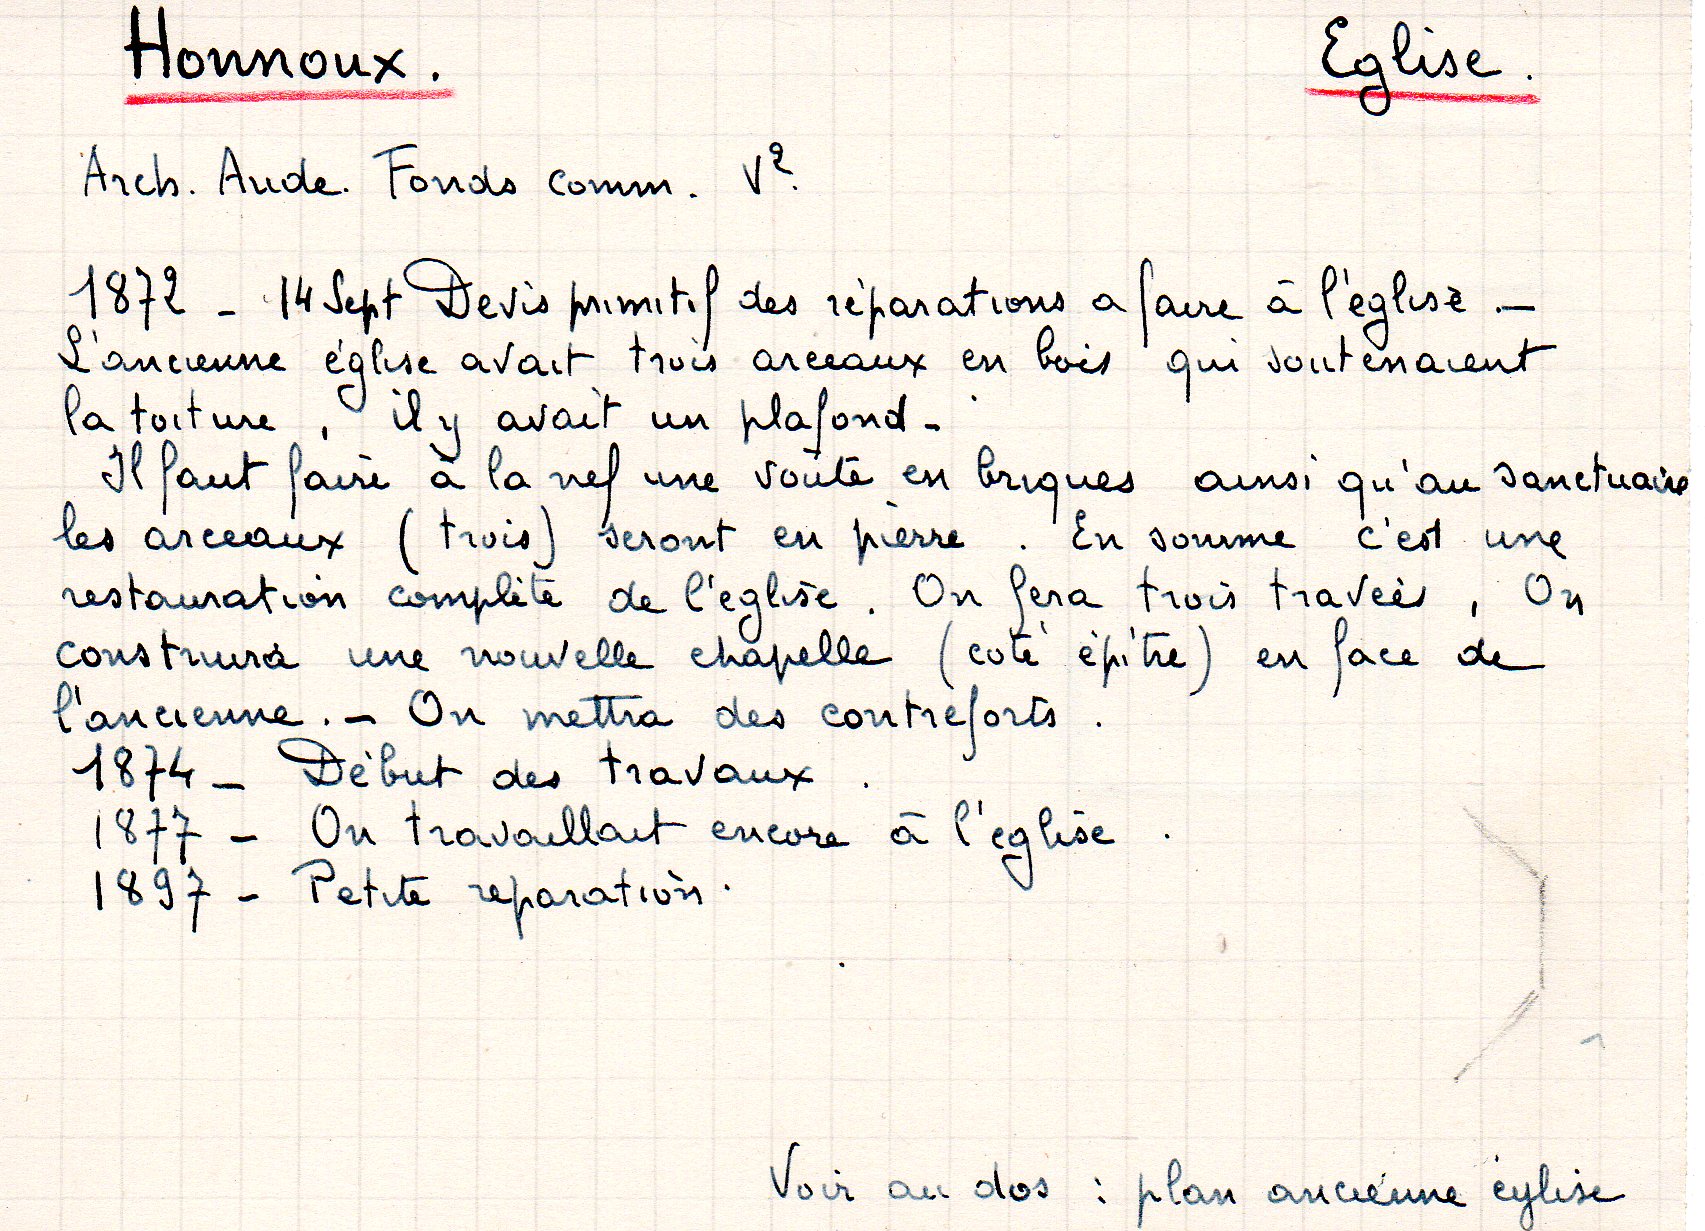 Honnoux. Eglise.
Arch. Aude. Fonds comm. V².
1872 - 14 Sept Devis primitif des réparations a faire à l'église . -
L'ancienne église avait trois arceaux en bois qui soutenaient
la toiture , il y avait un plafond -
Il faut faire à la nef une voûte en briques ainsi qu'au sanctuaire
les arceaux ( trois ) seront en pierre . En somme c'est une
restauration complète de l'eglise . On fera trois travées , On
construira une nouvelle chapelle ( coté épître ) en face de
l'ancienne . - On mettra des contreforts .
1874 - Début des travaux .
1877 - On travaillait encore à l'église .
1897 - Petite reparation .
Voir au dos : plan ancienne église